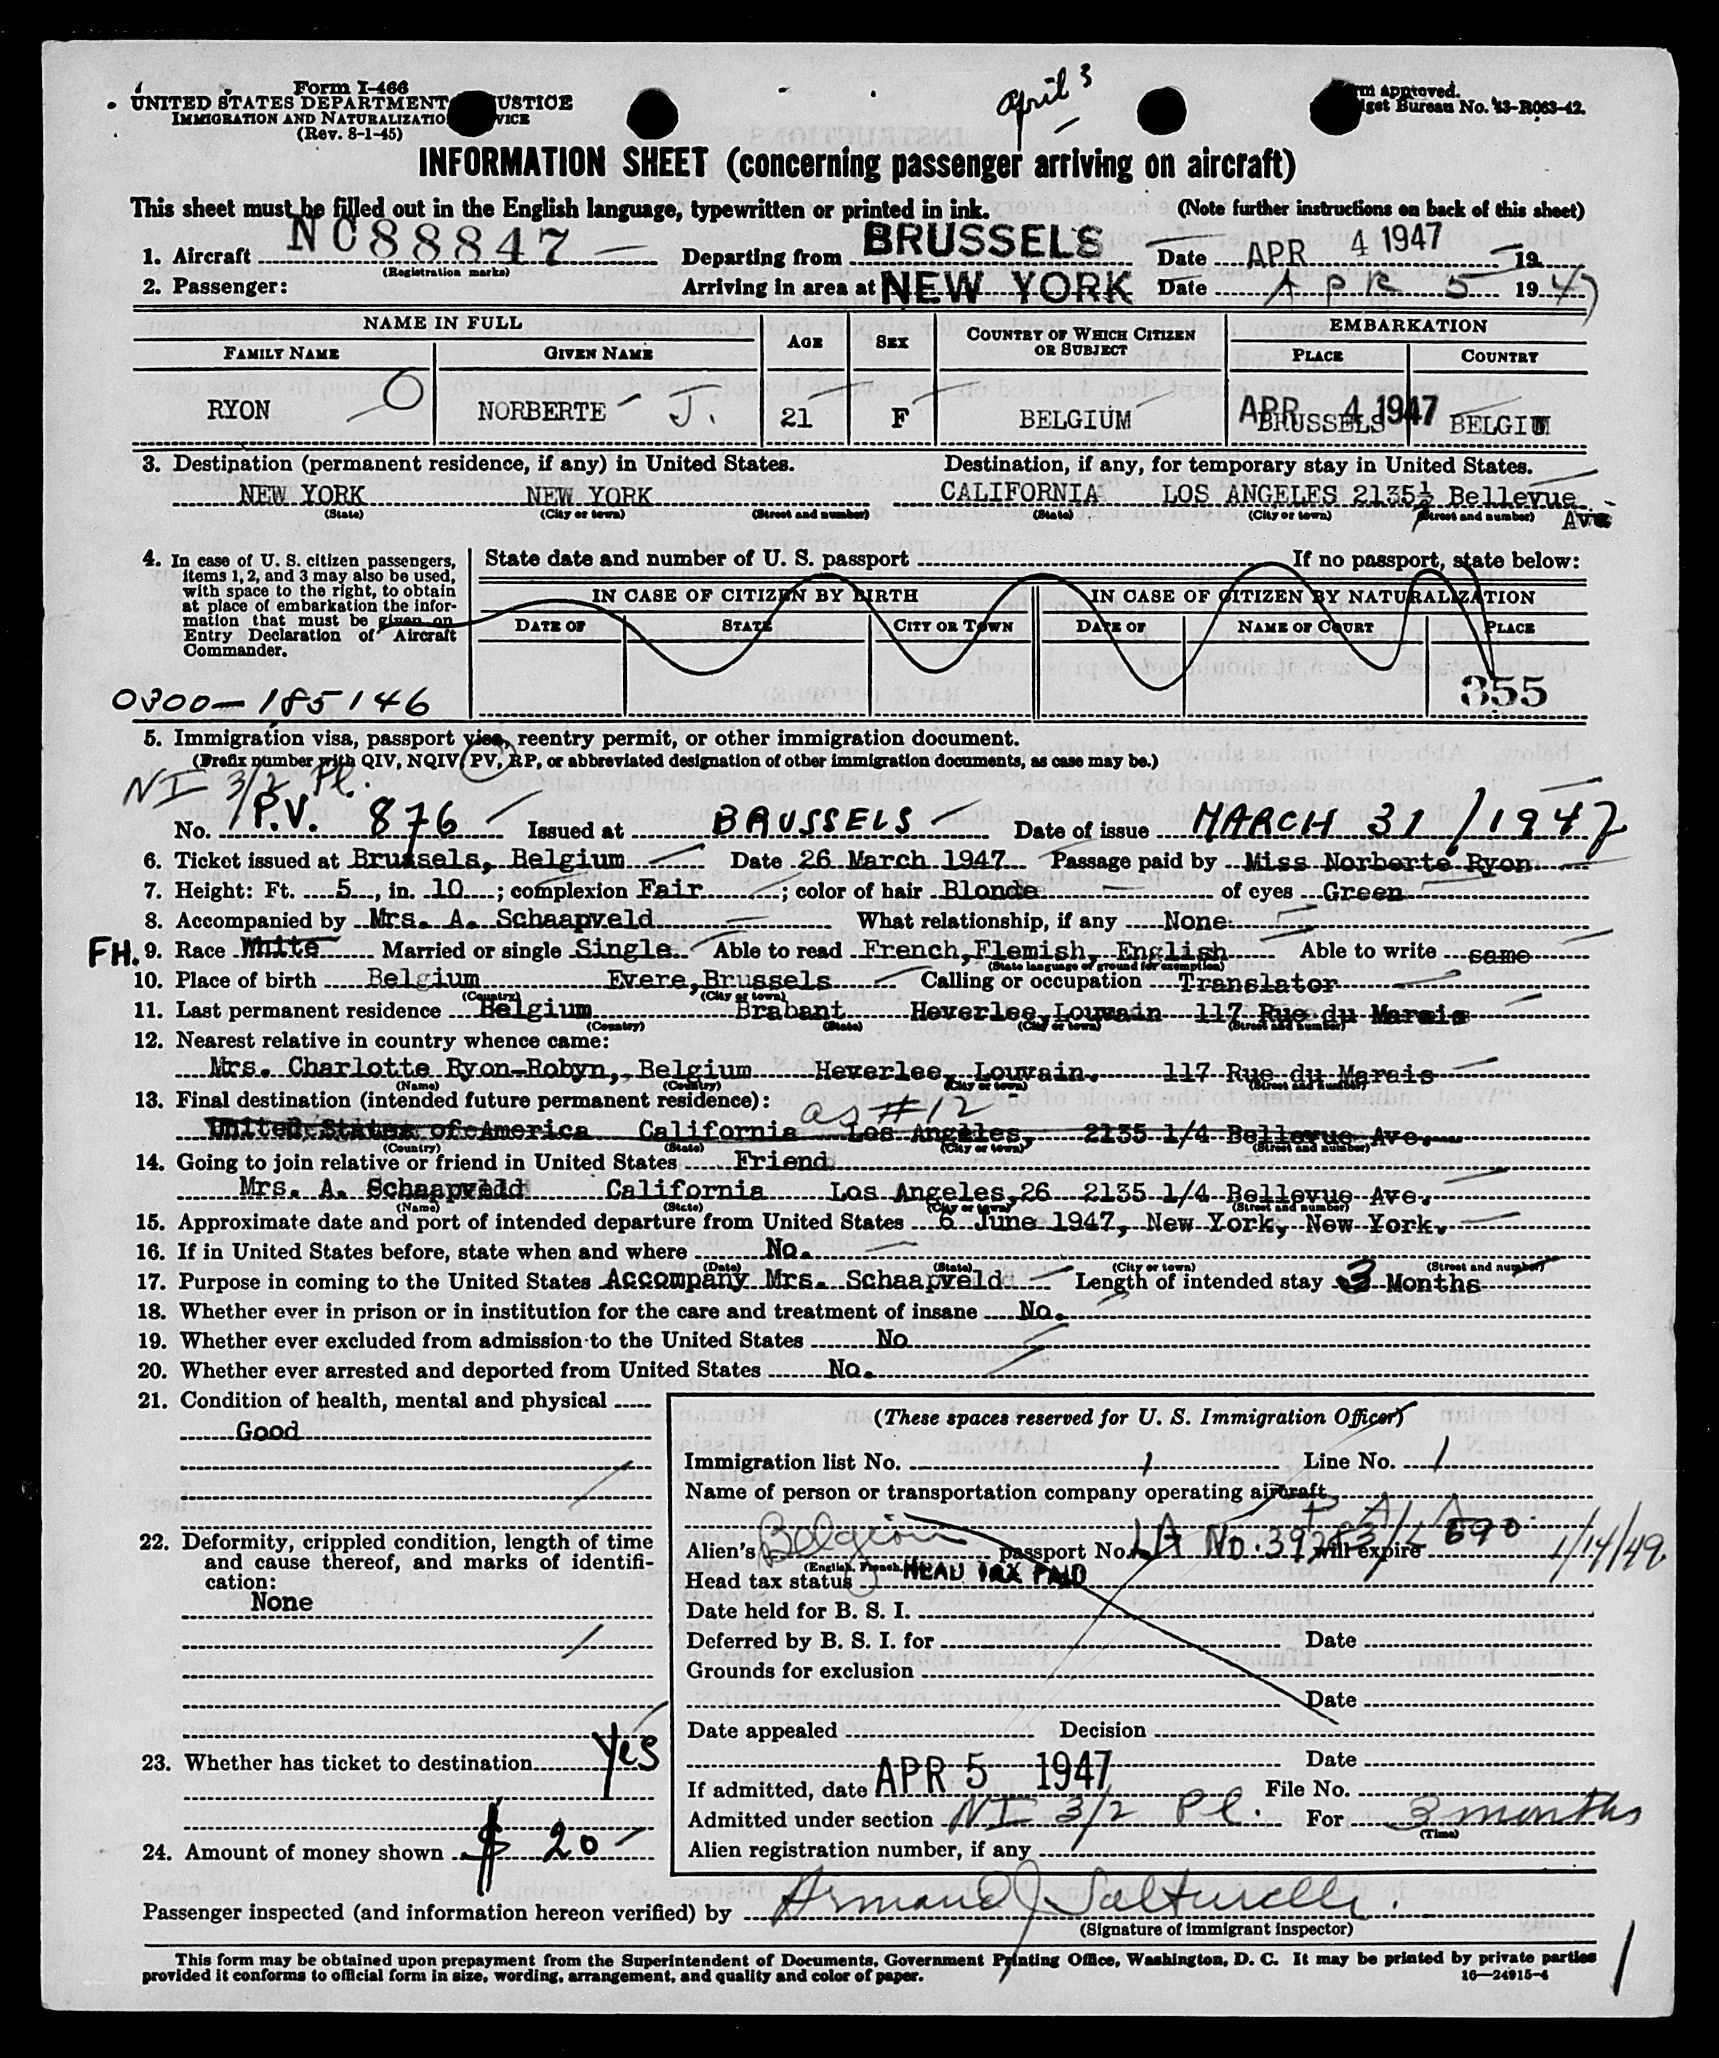 Form I-466
UNITED STATES DEPARTMENT USTICE
IMMIGRATION AND NATURALIZATIO VICE
(Rev. 8-1-45)
april 3
m approved.
get Bureau No. 43-R063-42.
INFORMATION SHEET (concerning passenger arriving on aircraft)
This sheet must be filled out in the English language, typewritten or printed in ink. (Note further instructions on back of this sheet)
1. Aircraft NC88847 Departing from BRUSSELS Date APR 4 1947 19
(Registration marks)
2. Passenger: Arriving in area at NEW YORK Date APR 5 1947
NAME IN FULL AGE SEX COUNTRY OF WHICH CITIZEN OR SUBJECT EMBARKATION
FAMILY NAME GIVEN NAME PLACE COUNTRY
RYON O NORBERTE J. 21 F BELGIUM BRUSSELS APR 4 1947 BELGIUM
3. Destination (permanent residence, if any) in United States. Destination, if any, for temporary stay in United States.
NEW YORK NEW YORK CALIFORNIA LOS ANGELES 2135½ Bellevue Ave
(State) (City or town) (Street and number) (State) (City or town) (Street and number)
4. In case of U. S. citizen passengers, items 1, 2, and 3 may also be used, with space to the right, to obtain at place of embarkation the information that must be given on Entry Declaration of Aircraft Commander.
State date and number of U. S. passport If no passport, state below:
IN CASE OF CITIZEN BY BIRTH IN CASE OF CITIZEN BY NATURALIZATION
DATE OF STATE CITY OR TOWN DATE OF NAME OF COURT PLACE
0300-185146 355
5. Immigration visa, passport visa, reentry permit, or other immigration document.
(Prefix number with QIV, NQIV, PV, RP, or abbreviated designation of other immigration documents, as case may be.)
NI 3/2 Pl.
No. P.V. 876 Issued at BRUSSELS Date of issue MARCH 31/1947
6. Ticket issued at Brussels, Belgium Date 26 March 1947 Passage paid by Miss Norberte Ryon
7. Height: Ft. 5, in. 10; complexion Fair; color of hair Blonde of eyes Green
8. Accompanied by Mrs. A. Schaapveld What relationship, if any None
FH. 9. Race White Married or single Single Able to read French, Flemish, English Able to write same
(State language or ground for exemption)
10. Place of birth Belgium Evere, Brussels Calling or occupation Translator
(Country) (City or town)
11. Last permanent residence Belgium Brabant Heverlee, Louvain 117 Rue du Marais
(Country) (State) (City or town) (Street and number)
12. Nearest relative in country whence came:
Mrs. Charlotte Ryon-Robyn, Belgium Heverlee, Louvain. 117 Rue du Marais
(Name) (Country) (City or town) (Street and number)
13. Final destination (intended future permanent residence): as #12
United States of America California Los Angeles, 2135 1/4 Bellevue Ave.
(Country) (State) (City or town) (Street and number)
14. Going to join relative or friend in United States Friend
Mrs. A. Schaapveld California Los Angeles, 26 2135 1/4 Bellevue Ave.
(Name) (State) (City or town) (Street and number)
15. Approximate date and port of intended departure from United States 6 June 1947, New York, New York.
16. If in United States before, state when and where No.
(Date) (State) (City or town) (Street and number)
17. Purpose in coming to the United States Accompany Mrs. Schaapveld Length of intended stay 3 Months
18. Whether ever in prison or in institution for the care and treatment of insane No.
19. Whether ever excluded from admission to the United States No
20. Whether ever arrested and deported from United States No.
21. Condition of health, mental and physical
Good
22. Deformity, crippled condition, length of time and cause thereof, and marks of identification:
None
23. Whether has ticket to destination Yes
24. Amount of money shown $ 20
(These spaces reserved for U. S. Immigration Officer)
Immigration list No. 1 Line No. 1
Name of person or transportation company operating aircraft
Alien's Belgian passport No. will expire 1/14/49.
(English, French,
Head tax status HEAD TAX PAID
Date held for B. S. I.
Deferred by B. S. I. for Date
Grounds for exclusion
Date
Date appealed Decision
Date
If admitted, date APR 5 1947 File No.
Admitted under section NI 3/2 Pl. For 3 months
(Time)
Alien registration number, if any
Passenger inspected (and information hereon verified) by Armand J. Salturelli.
(Signature of immigrant inspector)
This form may be obtained upon prepayment from the Superintendent of Documents, Government Printing Office, Washington, D. C. It may be printed by private parties
provided it conforms to official form in size, wording, arrangement, and quality and color of paper. 16—24915-4
1